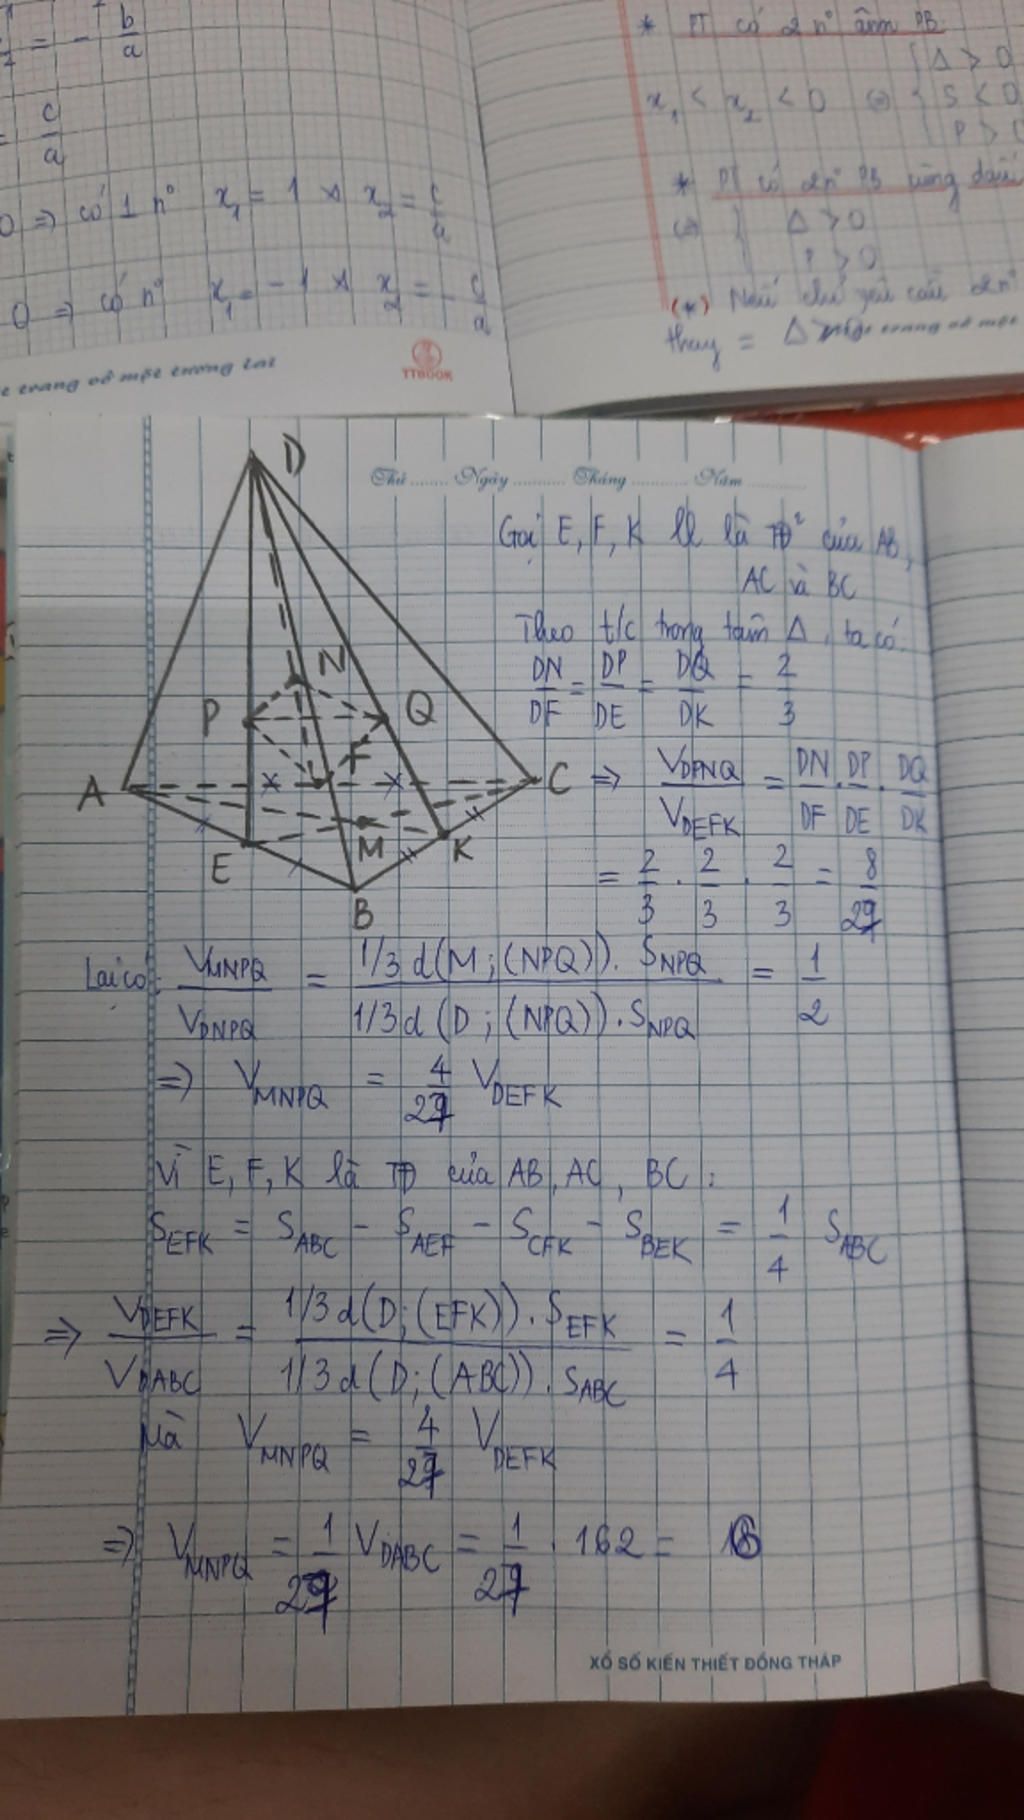 = - b/a
= c/a
0 => có 1 n° x₁ = 1 v x₂ = c/a
0 => có n° x₁ = -1 v x₂ = -c/a
trang vở một tương lai
TTBOOK
* PT có 2 n° âm PB
x₁ < x₂ < 0 <=> { Δ > 0
S < 0
P > 0
* PT có 2n° PB cùng dấu
<=> { Δ > 0
P > 0
(*) Nếu chỉ yêu cầu 2n°
thay = Δ
trang vở một
Thứ ........ Ngày .......... Tháng .......... Năm ..........
D
Gọi E, F, K ll là TĐ² của AB,
AC và BC
Theo t/c trọng tâm Δ, ta có:
DN/DF = DP/DE = DQ/DK = 2/3
N
P Q
F
A C
E M K
B
=> V_DPNQ/V_DEFK = DN/DF . DP/DE . DQ/DK
= 2/3 . 2/3 . 2/3 = 8/27
Lại có: V_MNPQ/V_DNPQ = 1/3 d(M;(NPQ)). S_NPQ / 1/3 d(D;(NPQ)). S_NPQ = 1/2
=> V_MNPQ = 4/27 V_DEFK
Vì E, F, K là TĐ của AB, AC, BC:
S_EFK = S_ABC - S_AEF - S_CFK - S_BEK = 1/4 S_ABC
=> V_DEFK/V_DABC = 1/3 d(D;(EFK)). S_EFK / 1/3 d(D;(ABC)). S_ABC = 1/4
Mà V_MNPQ = 4/27 V_DEFK
=> V_MNPQ = 1/27 V_DABC = 1/27 . 162 = 6
XỔ SỐ KIẾN THIẾT ĐỒNG THÁP